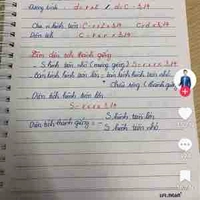 Đường kính : d = r x 2 / d = C : 3,14
Chu vi hình tròn : C = r x 2 x 3,14 C = d x 3,14
Diện tích : S = r x r x 3,14
Tìm diện tích thành giếng
- S hình tròn nhỏ (miệng giếng) S = r x r x 3,14
- Bán kính hình tròn lớn = bán kính hình tròn nhỏ
Chiều rộng (thành giếng)
- Diện tích hình tròn lớn
S = r x r x 3,14
Diện tích thành giếng = S hình tròn lớn
S hình tròn nhỏ